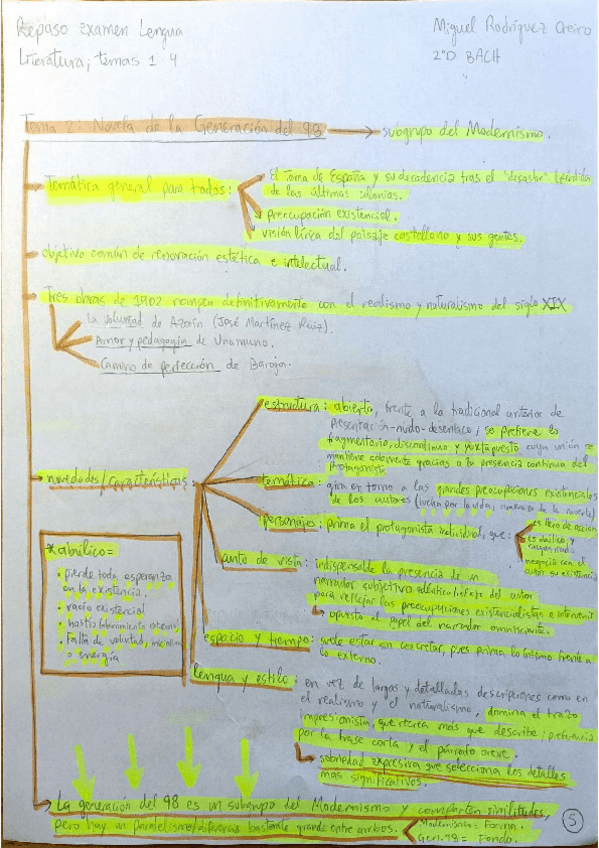 Repaso Examen Lengua
Literatura; temas 1 4
Miguel Rodríguez Oreiro
2ºD BACH
Tema 2: Novela de la Generación del 98 → subgrupo del Modernismo.
Temática general para todos:
El tema de España y su decadencia tras el "desastre" (pérdida
de las últimas colonias.
preocupación existencial.
visión lírica del paisaje castellano y sus gentes.
objetivo común de renovación estética e intelectual.
Tres obras de 1902 rompen definitivamente con el realismo y naturalismo del siglo XIX
La voluntad de Azorín (José Martínez Ruiz).
Amor y pedagogía de Unamuno.
Camino de perfección de Baroja.
novedades/características:
estructura: abierta, frente a la tradicional anterior de
presentación-nudo-desenlace; se prefiere lo
fragmentario, discontinuo y yuxtapuesto cuya unión se
mantiene solamente gracias a la presencia continua del
protagonista
temática: gira en torno a las grandes preocupaciones existenciales
de los autores (lucha por la vida, amenaza de la muerte)
personajes: prima el protagonista individual, que:
es libre de acción
es abúlico, y
negocia con el
autor su existencia
punto de vista: indispensable la presencia de un
narrador subjetivo del autor
para reflejar las preocupaciones existencialistas e intervenir
opuesto al papel del narrador omnisciente.
espacio y tiempo: suele estar sin concretar, pues prima lo íntimo frente a
lo externo.
lengua y estilo: en vez de largas y detalladas descripciones como en
el realismo y el naturalismo, domina el trazo
impresionista, que recrea más que describe: preferencia
por la frase corta y el párrafo breve.
sobriedad expresiva que selecciona los detalles
más significativos.
*abúlico=
· pierde toda esperanza
en la existencia.
· vacío existencial
· hastío (aburrimiento extremo)
· Falta de voluntad,
o energía
La generación del 98 es un subgrupo del Modernismo y comparten similitudes,
pero hay un paralelismo/diferencia bastante grande entre ambos.
Modernismo= Forma.
Gen.98= Fondo.
5